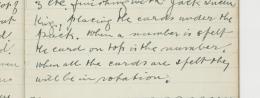 3 etc, finishing with Jack Queen
King, placing the cards under the
pack. When a number is spelt
the card on top is the number.
When all the cards are spelt they
will be in rotation.